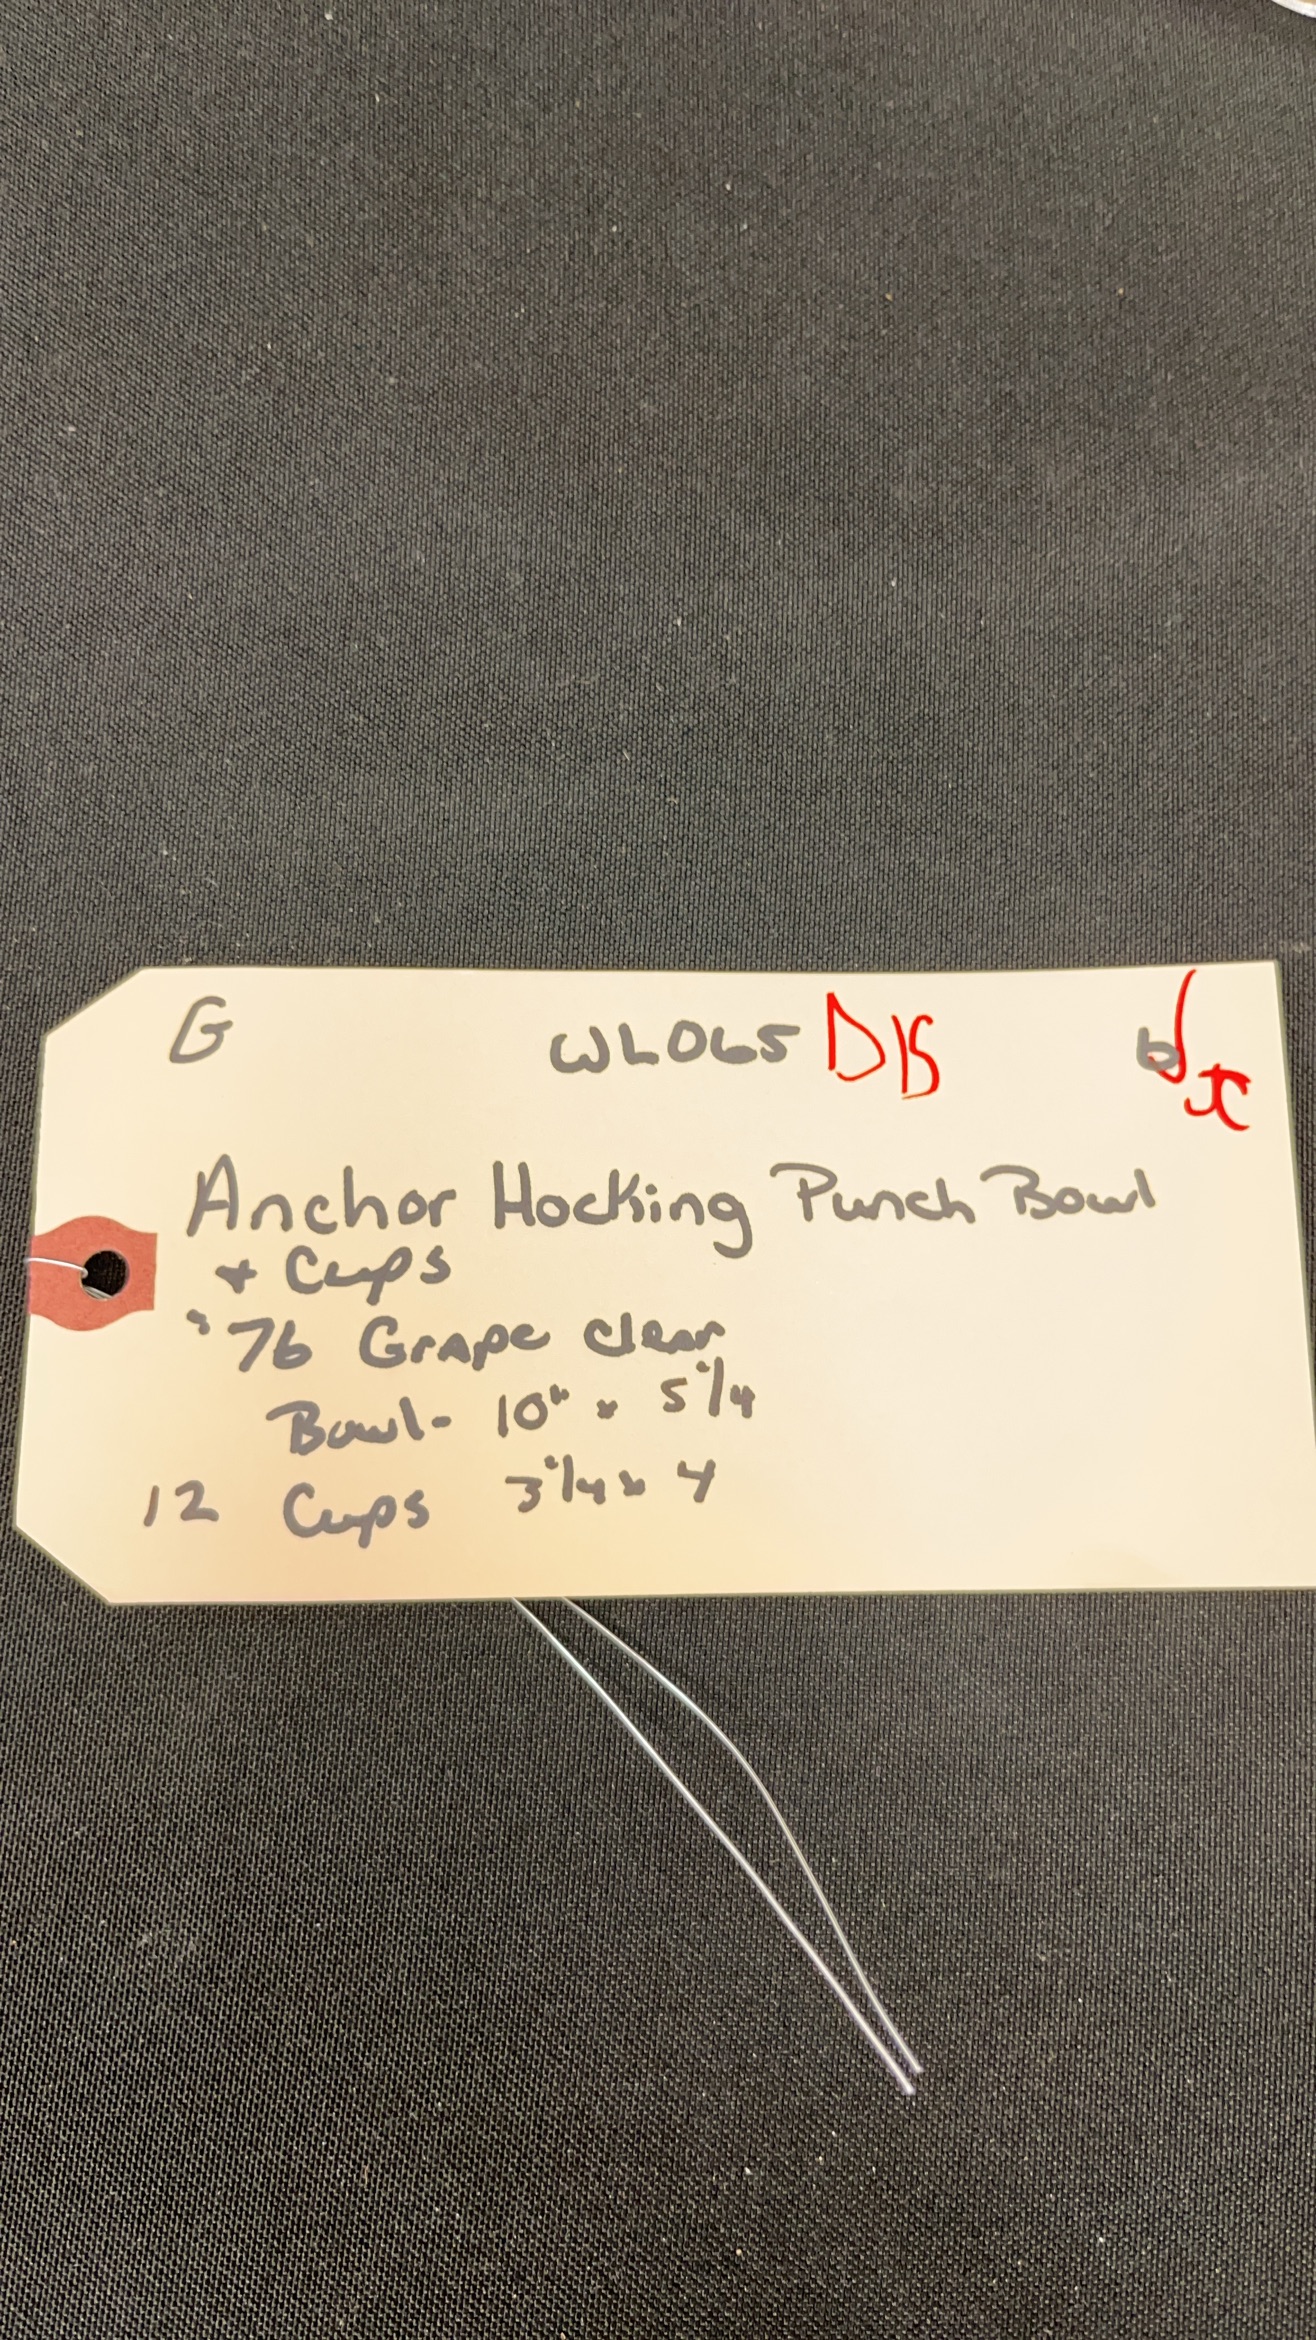 G WL065 D15 b x
Anchor Hocking Punch Bowl
+ Cups
'76 Grape Clear
Bowl- 10" x 5 1/4
12 Cups 3 1/4 x 4